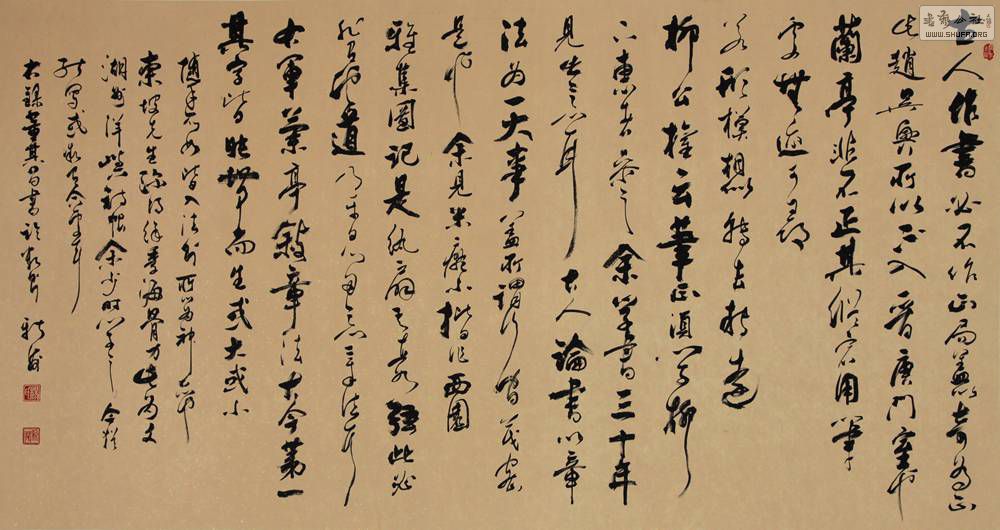 人作書必不作正局蓋以奇為正
此趙吳興所以不入晉唐門室也
蘭亭非不正其縱宕用筆
處無跡可尋
若形模想似轉去轉遠
柳公權云筆正須學柳
下惠者參之余學書三十年
見此意耳古人論書以章
法為一大事蓋所謂行間茂密
是也余見米癡小楷作西園
雅集圖記是紈扇其直如弦此必
非有他道乃平日留意章法耳
右軍蘭亭敘章法古今第一
其字皆映帶而生或大或小
隨手所如皆入法則所以為神品也
東坡先生深得徐季海骨力此為文
湖州洋嶼詩帖余少時學之今猶
能寫或微有合處耳
右錄董其昌書論數則
公社
WWW.SHUFA.ORG